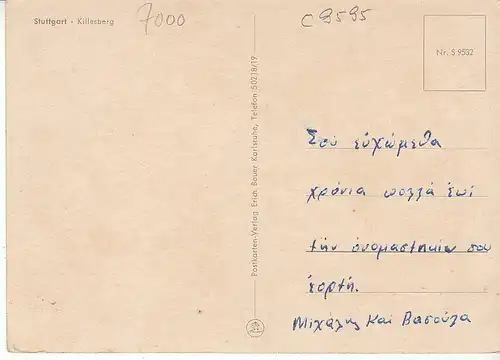 Stuttgart - Killesberg
7000
C 9595
Nr. S 9532
Postkarten-Verlag Erich Bauer Karlsruhe, Telefon 50218/19
Σου εὐχώμεθα
χρόνια πολλά ἐπί
τήν ὀνομαστικήν σου
ἑορτή.
Μιχάλης Και Βασούλα